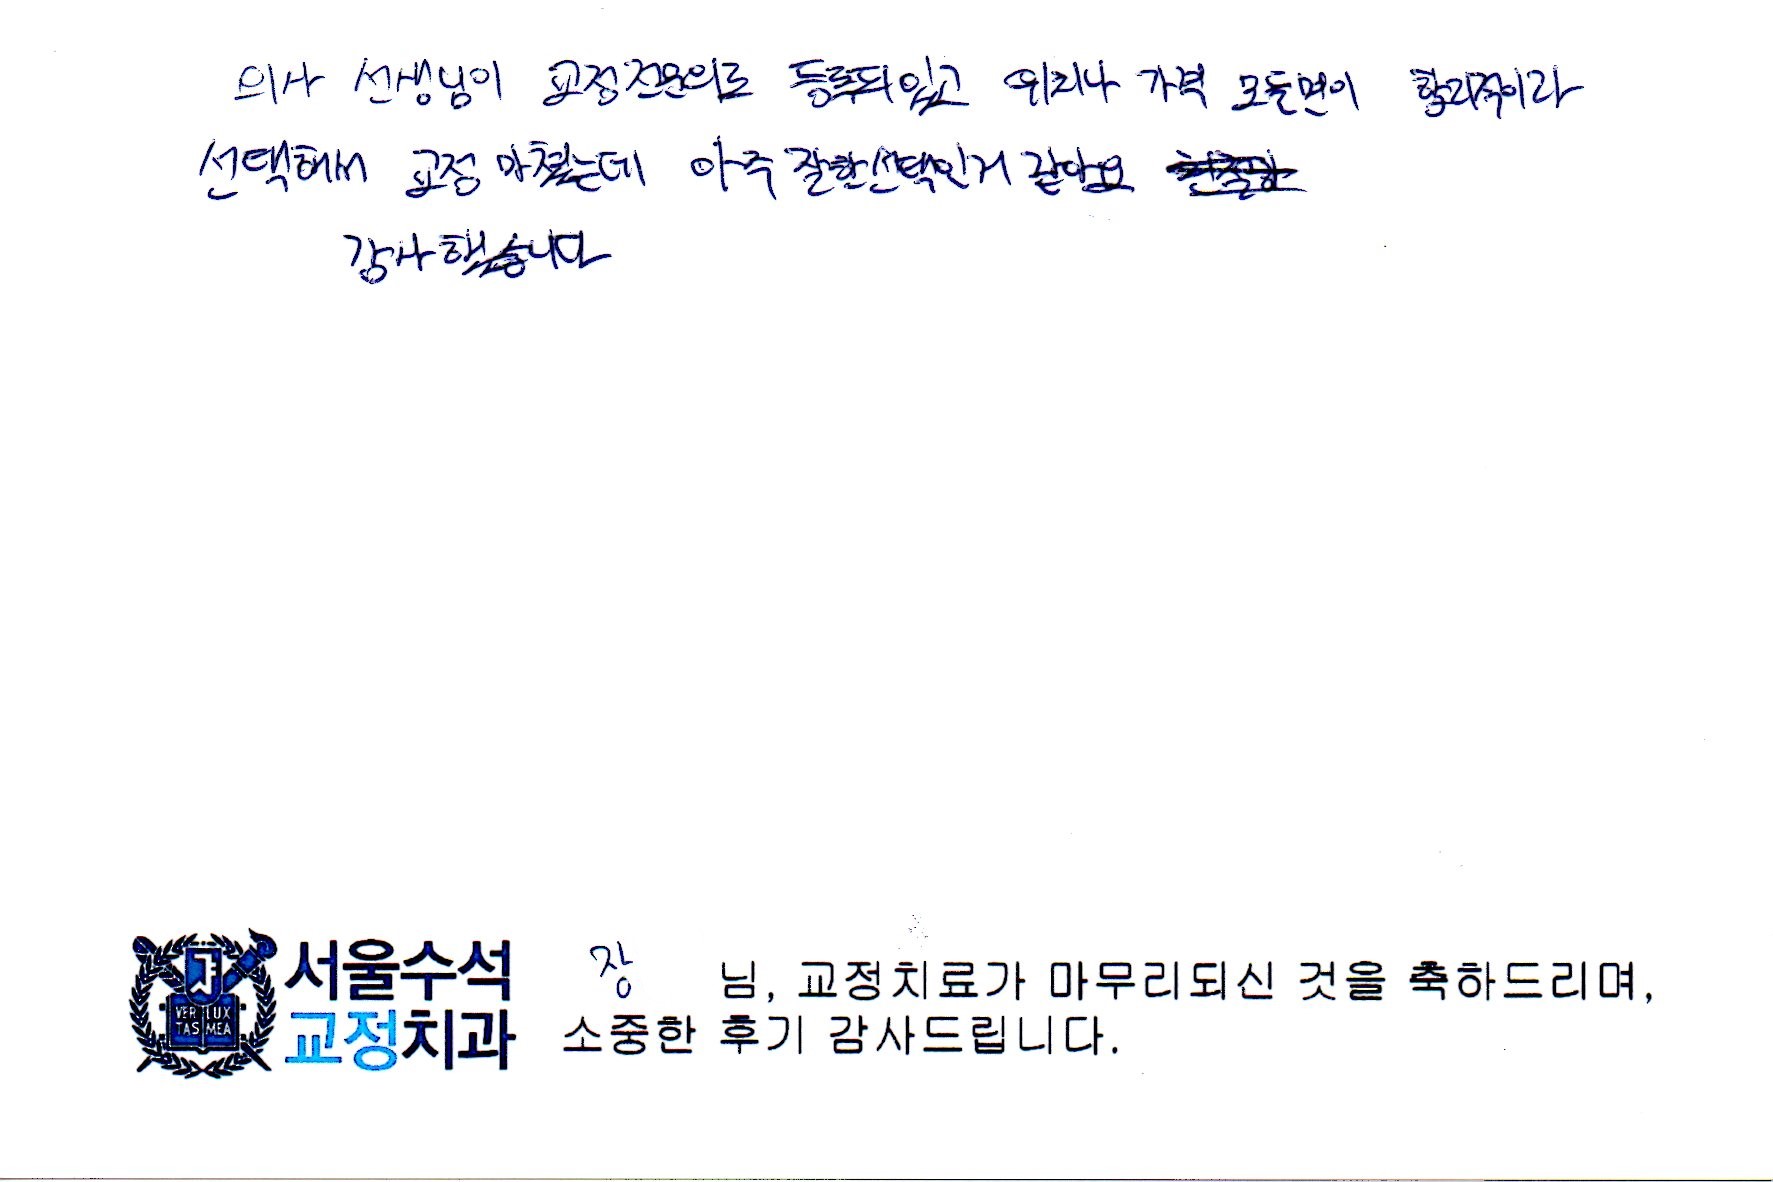 의사 선생님이 교정전문의로 등록되있고 위치나 가격 모든면이 합리적이라
선택해서 교정 마쳤는데 아주 잘한선택인거 같아요
감사했습니다
서울수석
교정치과
VERI LUX
TAS MEA
장 님, 교정치료가 마무리되신 것을 축하드리며,
소중한 후기 감사드립니다.